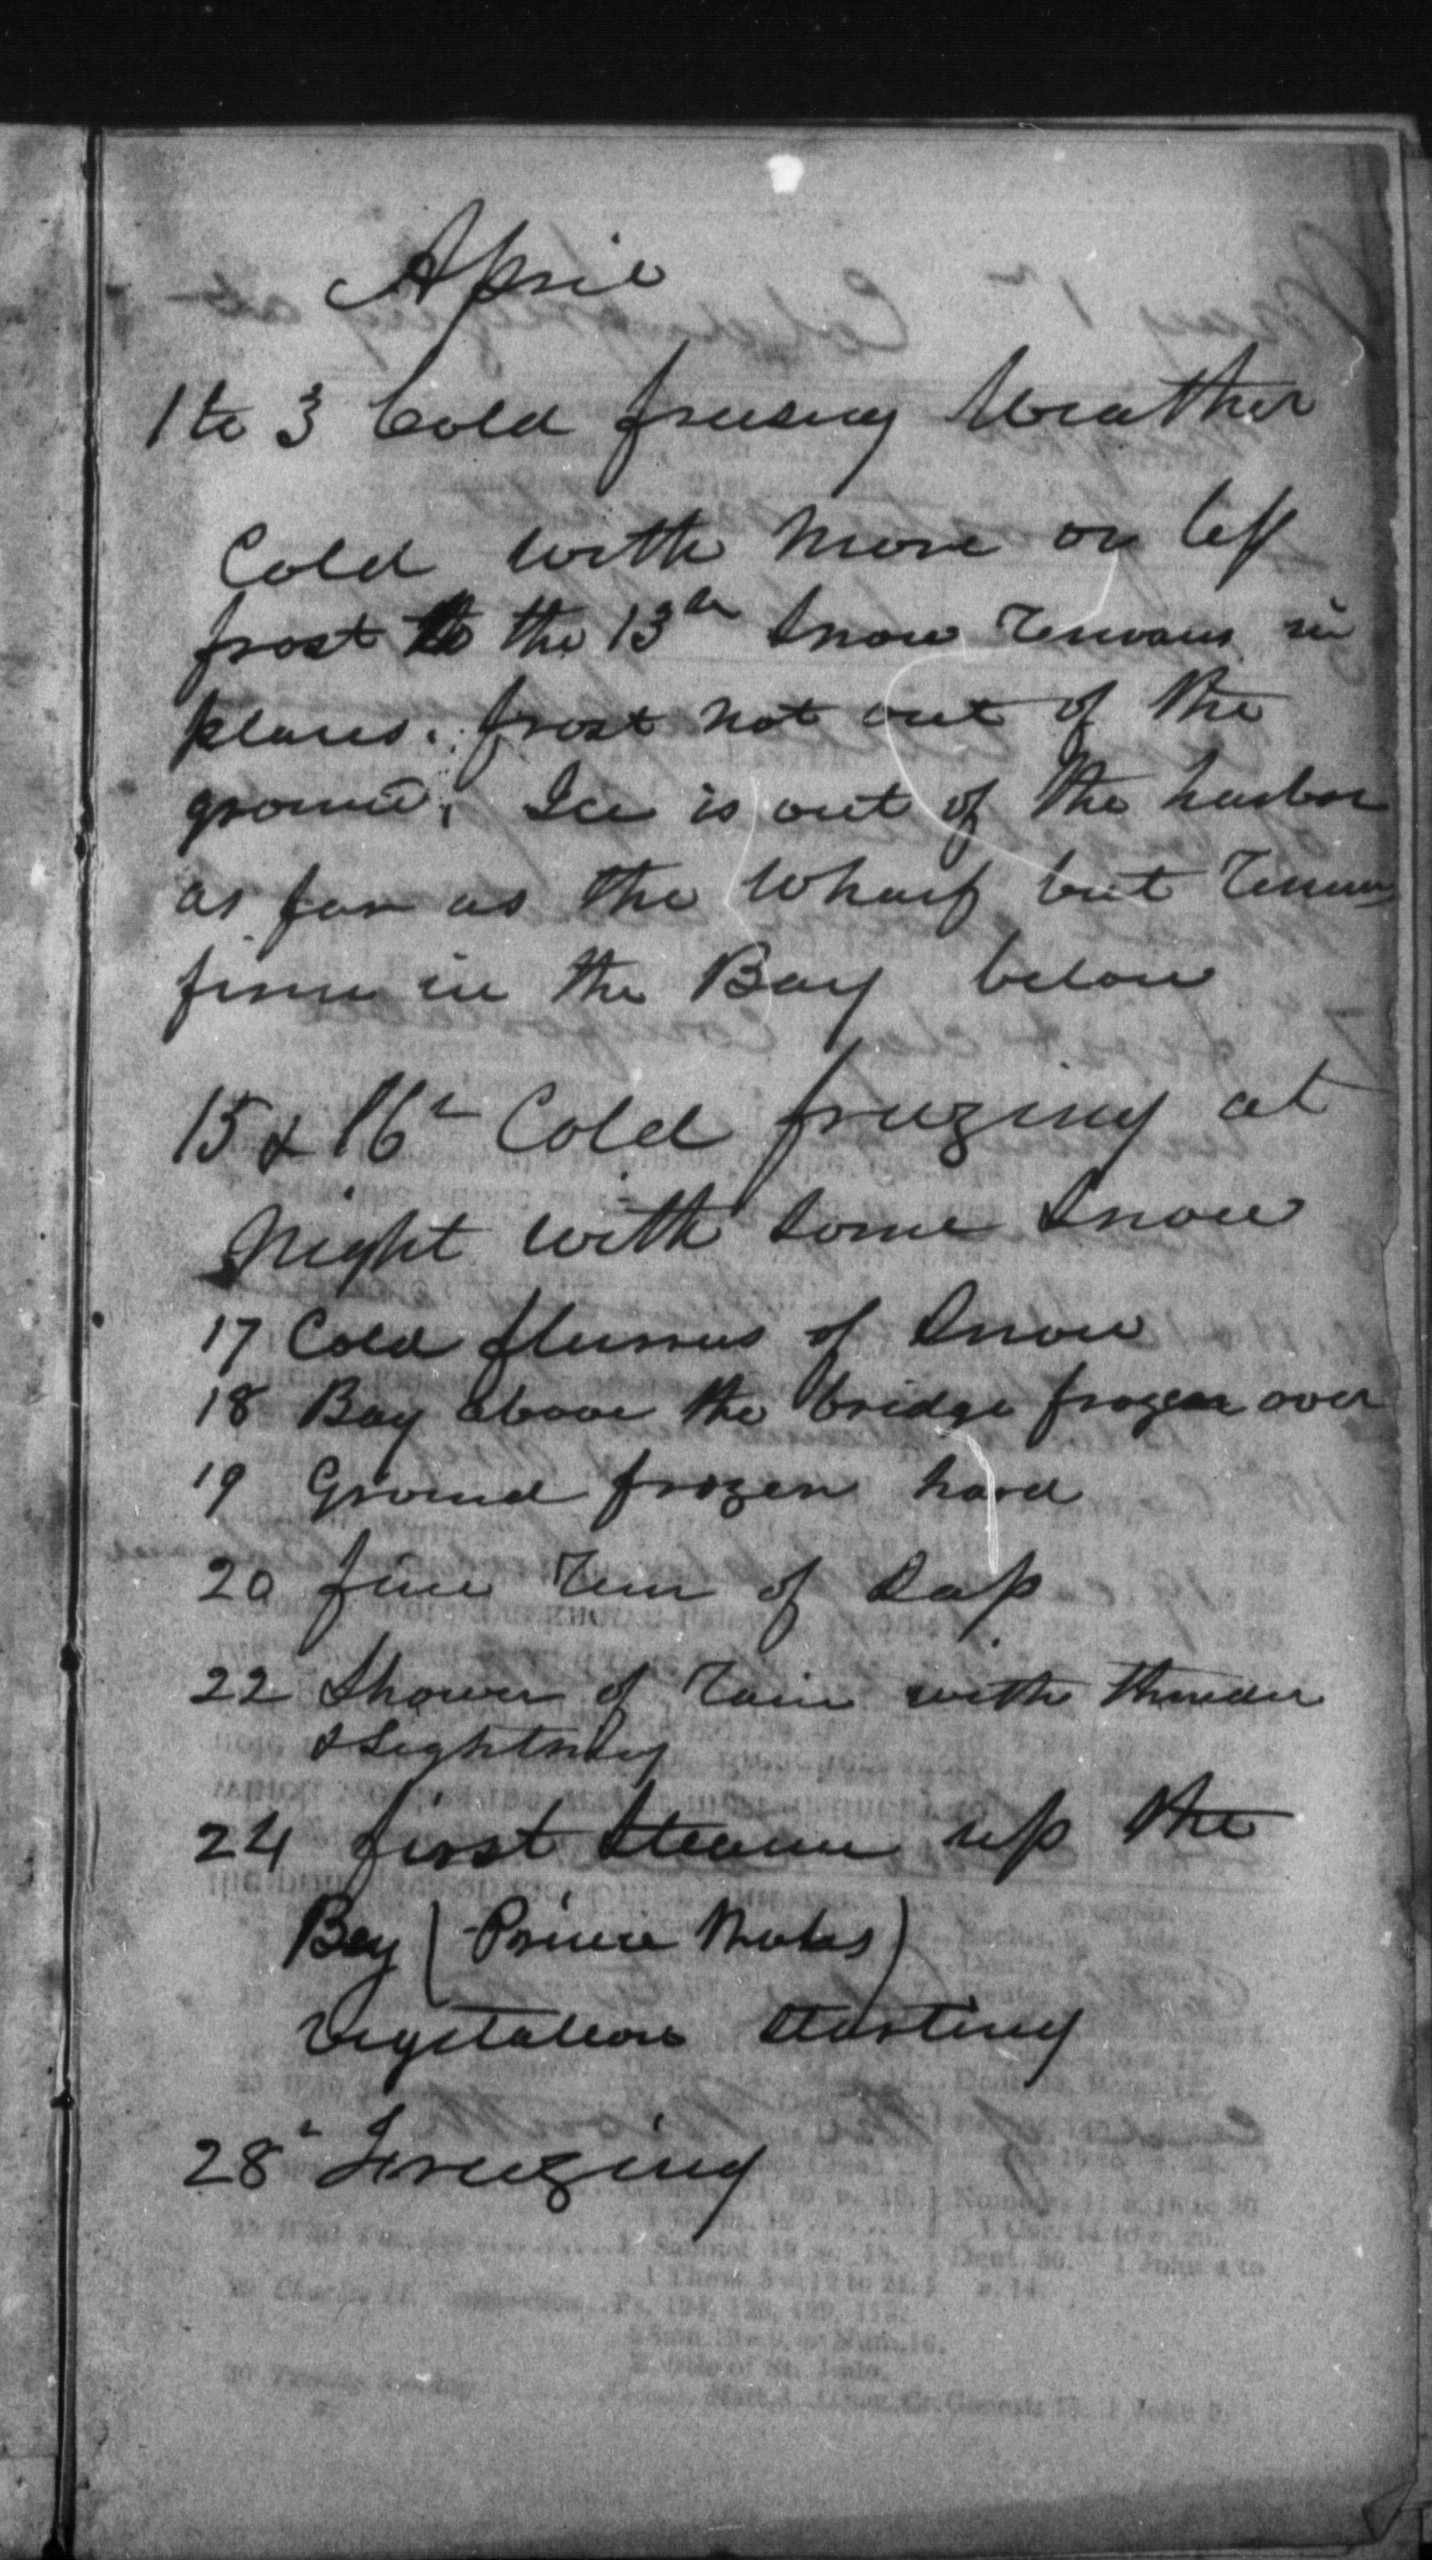 April
1 to 3 Cold freesing Weather
Cold with More or less
frost to the 13th Snow remains in
places. frost not out of the
ground. Ice is out of the harbor
as far as the Wharf but remains
firm in the Bay below
15 & 16th Cold freezing at
Night with some Snow
17 Cold flurries of Snow
18 Bay above the bridge frozen over
19 Ground frozen hard
20 fine run of Sap
22 Shower of rain with thunder
& Lightning
24 first steamer up the
Bay (Prince
Vegetation starting
28th Freezing